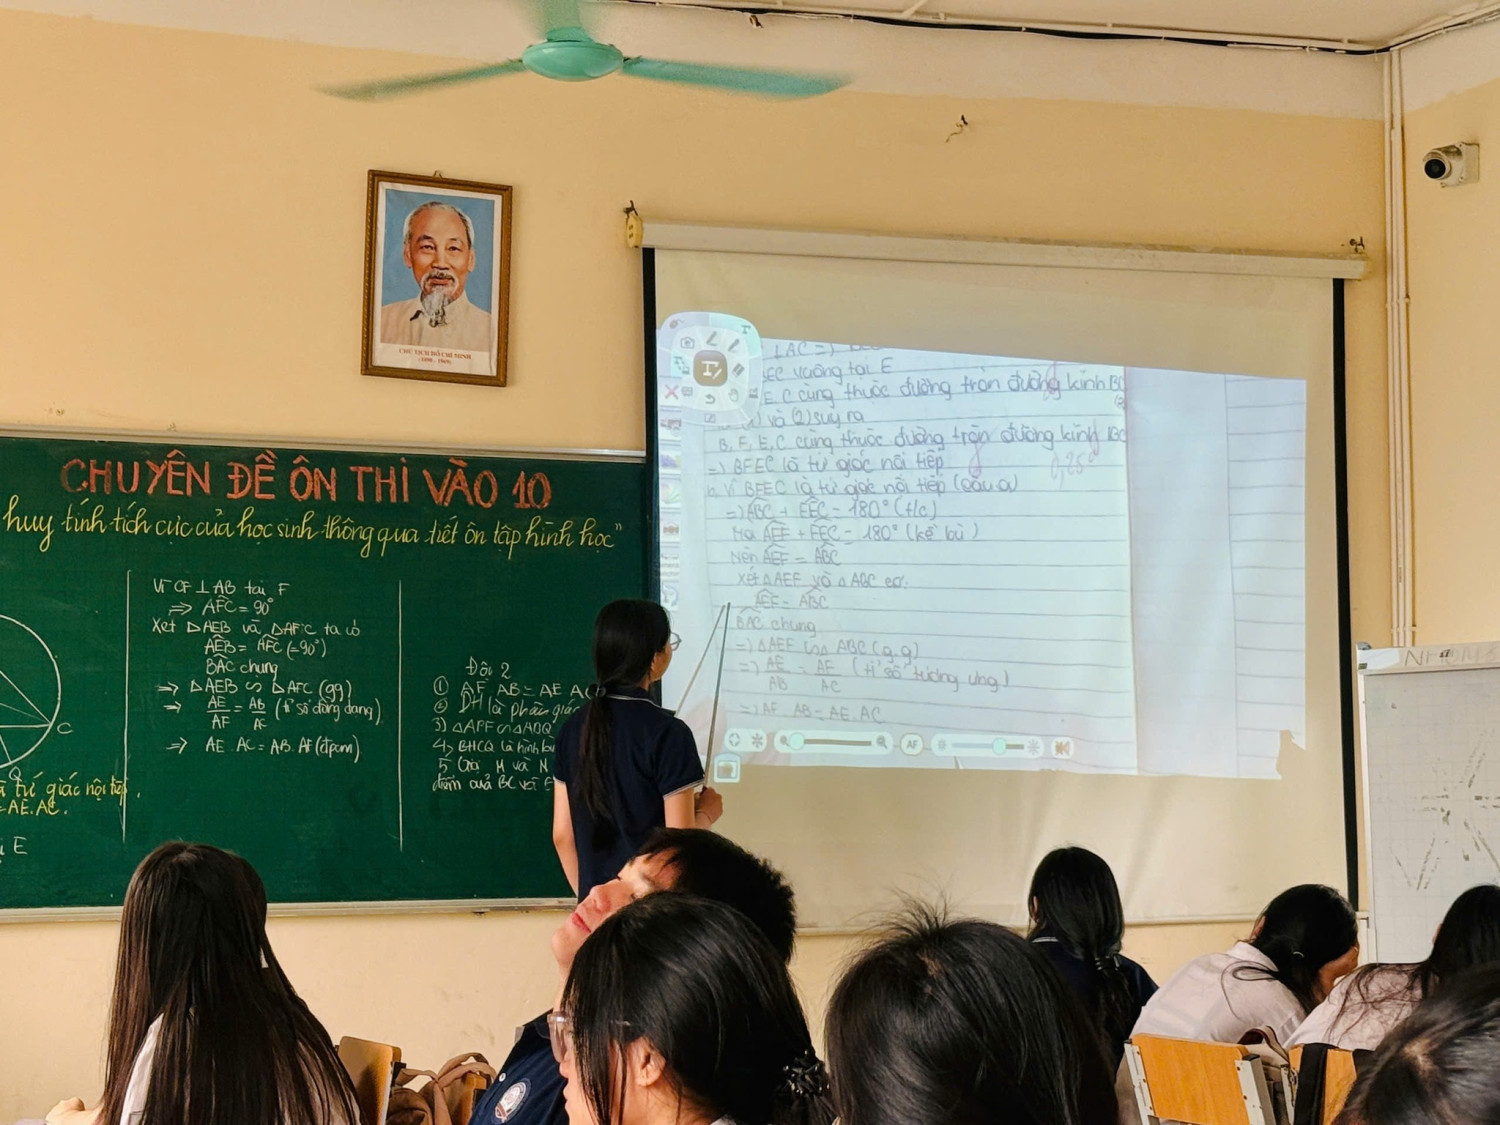 CHỦ TỊCH HỒ CHÍ MINH
(1890 - 1969)
CHUYÊN ĐỀ ÔN THI VÀO 10
huy tính tích cực của học sinh thông qua tiết ôn tập hình học"
Vì CF ⊥ AB tại F
=> AFC = 90°
Xét △AEB và △AFC ta có
AEB = AFC (=90°)
BAC chung
=> △AEB ∽ △AFC (gg)
=> AE/AF = AB/AC (tỉ số đồng dạng)
=> AE.AC = AB.AF (đpcm)
C
Q
tứ giác nội tiếp.
= AE.AC.
E
Đội 2
① AF AB = AE AC
② DH là phân giác
3) △APF ∽ △ABQ
4) BHCQ là hình bì
5 Gọi M và N
điểm của BC và E
⊥AC =>
EC vuông tại E
E, C cùng thuộc đường tròn đường kính BC
(2)
và (2) suy ra
B, F, E, C cùng thuộc đường tròn đường kính BC
=> BFEC là tứ giác nội tiếp
0,25đ
Vì BFEC là tứ giác nội tiếp (câu a)
=> ABC + FEC = 180° (t/c)
Mà AEF + FEC = 180° (kề bù)
Nên AEF = ABC
Xét △AEF và △ABC có:
AEF = ABC
BAC chung
=> △AEF ∽ △ABC (g.g)
=> AE/AB = AF/AC (tỉ số tương ứng)
=> AF AB = AE.AC
AF